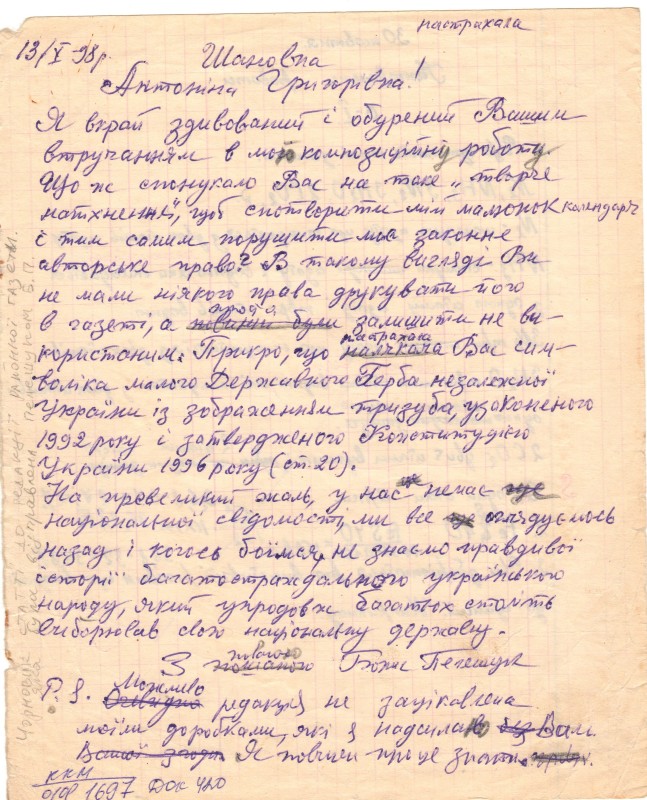 настрахала
13/X-98р. Шановна
Антоніна Григорівна!
Я вкрай здивований і обурений Вашим
втручанням в мою композиційну роботу.
Що ж спонукало Вас на таке „творче
натхнення", щоб спотворити мій малюнок календарі
і тим самим порушити моє законне
авторське право? В такому вигляді Ви
не мали ніякого права друкувати його
в газеті, а просто повинні були залишити не ви-
користаним. Прикро, що настрахала налякача Вас сим-
воліка малого Державного Герба незалежної
України із зображенням тризуба, узаконеного
1992 року і затвердженого Конституцією
України 1996 року (ст. 20).
На превеликий жаль, у нас ще немає ще
національної свідомості, ми все ще оглядуємось
назад і когось боїмся, не знаємо правдивої
історії багатостраждального українського
народу, який упродовж багатьох століть
виборював свою національну державу.
З повагою пошаною Борис Пегещук
P.S. Можливо Очевидно редакція не зацікавлена
моїми доробками, які я надсилаю без Вам.
Вашої згоди. Я повинен про це знати.
ККМ
1697 Док 420
Чорновик статті до редакції районної газети.